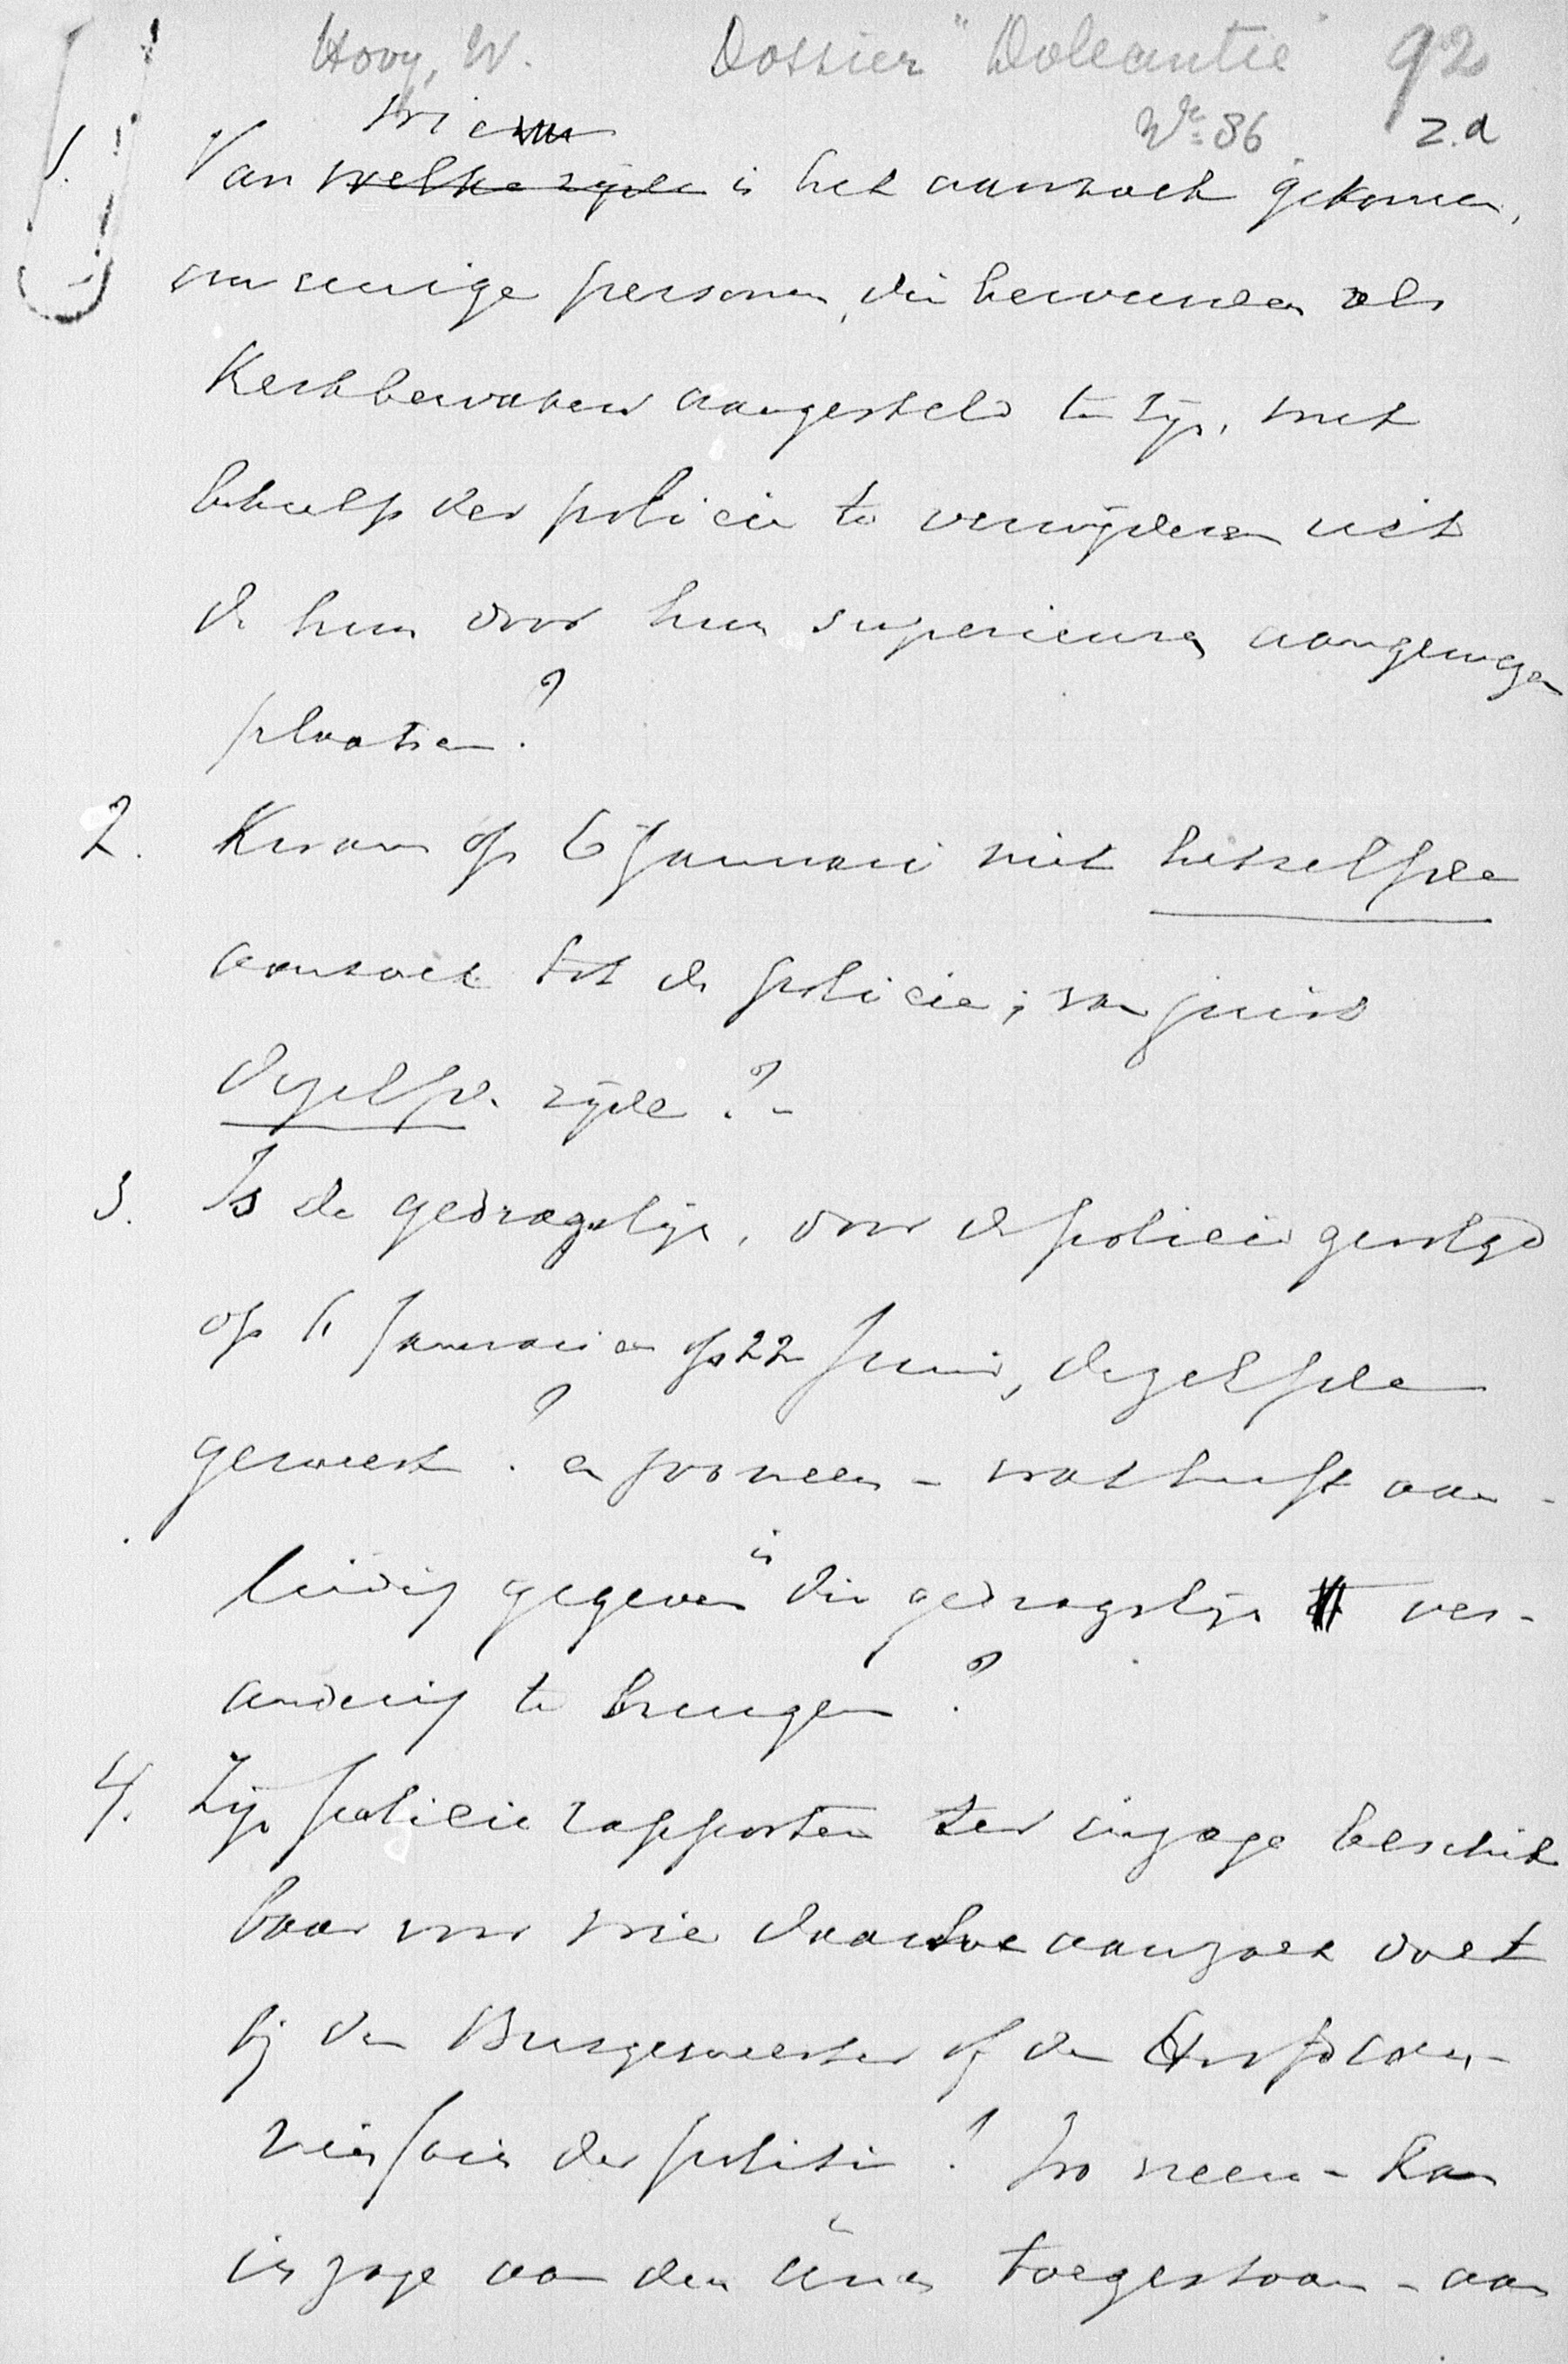 Hovy, W. Dossier "Doleantie" 92
No 86 2.a
wie
1. Van welke zijde is het aanzoek gekomen,
om eenige personen, die beweerden als
Kerkbewaker aangesteld te zijn, met
behulp der policie te verwijderen uit
de hun door hun superieuren aangewezen
plaatsen?
2. Kwam op 6 Januari niet hetzelfde
aanzoek tot de policie; van juist
dezelfde zijde?-
3. Is de gedragslijn, door de policie gevolgd
op 6 Januari en op 22 Juni, dezelfde
geweest? en zoo neen - wat heeft aan-
leiding gegeven in die gedragslijn ver-
andering te brengen?
4. Zijn policie rapporten ter inzage beschik
baar voor wie daartoe aanzoek doet
bij den Burgemeester of den Hoofdcom-
missaris der politie? Zoo neen - kan
inzage aan den één toegestaan - aan